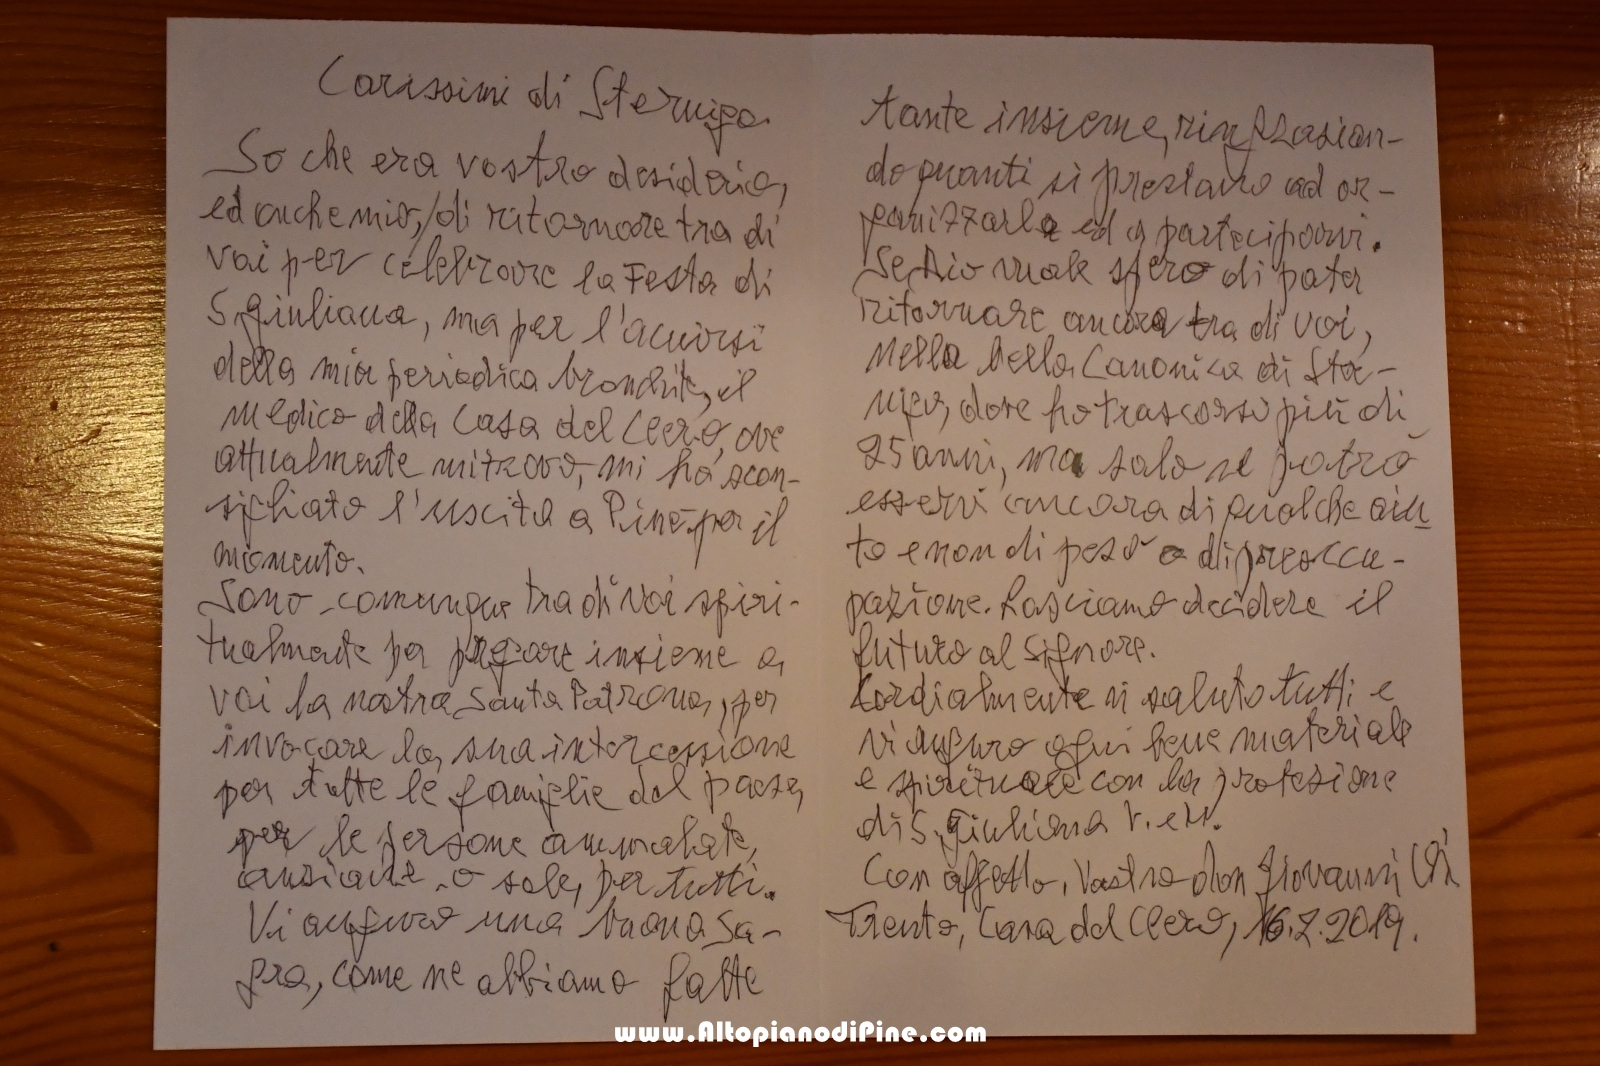 Carissimi di Sternigo.
So che era vostro desiderio,
ed anche mio, di ritornare tra di
voi per celebrare la Festa di
S. Giuliana, ma per l'acuirsi
della mia periodica bronchite, il
medico della Casa del Clero, ove
attualmente mi trovo, mi ha scon-
sigliato l'uscita a Piné per il
momento.
Sono comunque tra di voi spiri-
tualmente per pregare insieme a
voi la nostra Santa Patrona, per
invocare la sua intercessione
per tutte le famiglie del paese,
per le persone ammalate,
anziane o sole, per tutti.
Vi auguro una buona Sa-
gra, come ne abbiamo fatte
tante insieme, ringrazian-
do quanti si prestano ad or-
ganizzarla ed a parteciparvi.
Se Dio vuole spero di poter
ritornare ancora tra di voi,
nella bella Canonica di Ster-
nigo, dove ho trascorso più di
25 anni, ma solo se potrò
esservi ancora di qualche aiu
to e non di peso o di preoccu-
pazione. Lasciamo decidere il
futuro al Signore.
Cordialmente vi saluto tutti e
vi auguro ogni bene materiale
e spirituale con la protezione
di S. Giuliana V. e M.
Con affetto, Vostro don Giovanni
Trento, Casa del Clero, 16.2.2019.
www.AltopianodiPine.com